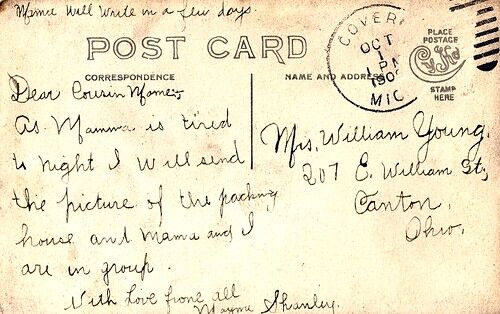 Mama Will Write in a few days.
POST CARD
CORRESPONDENCE
NAME AND ADDRESS
PLACE
POSTAGE
CYKO
STAMP
HERE
COVER
OCT
1
1 PM
190
MIC
Dear Cousin Mame,
As Mamma is tired
to night I will send
the picture of the packing
house and Mama and I
are in group.
With Love from all
Mayme Shanley.
Mrs. William Young.
207 E. William St.,
Canton,
Ohio.